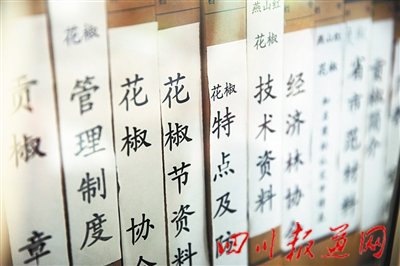 贡椒
章
花椒
管理制度
花椒
协会
花椒节资料
花椒
特点及
燕山红
花椒
技术资料
经济林协
燕山红
花椒
材料
贡椒简介
四川报道网